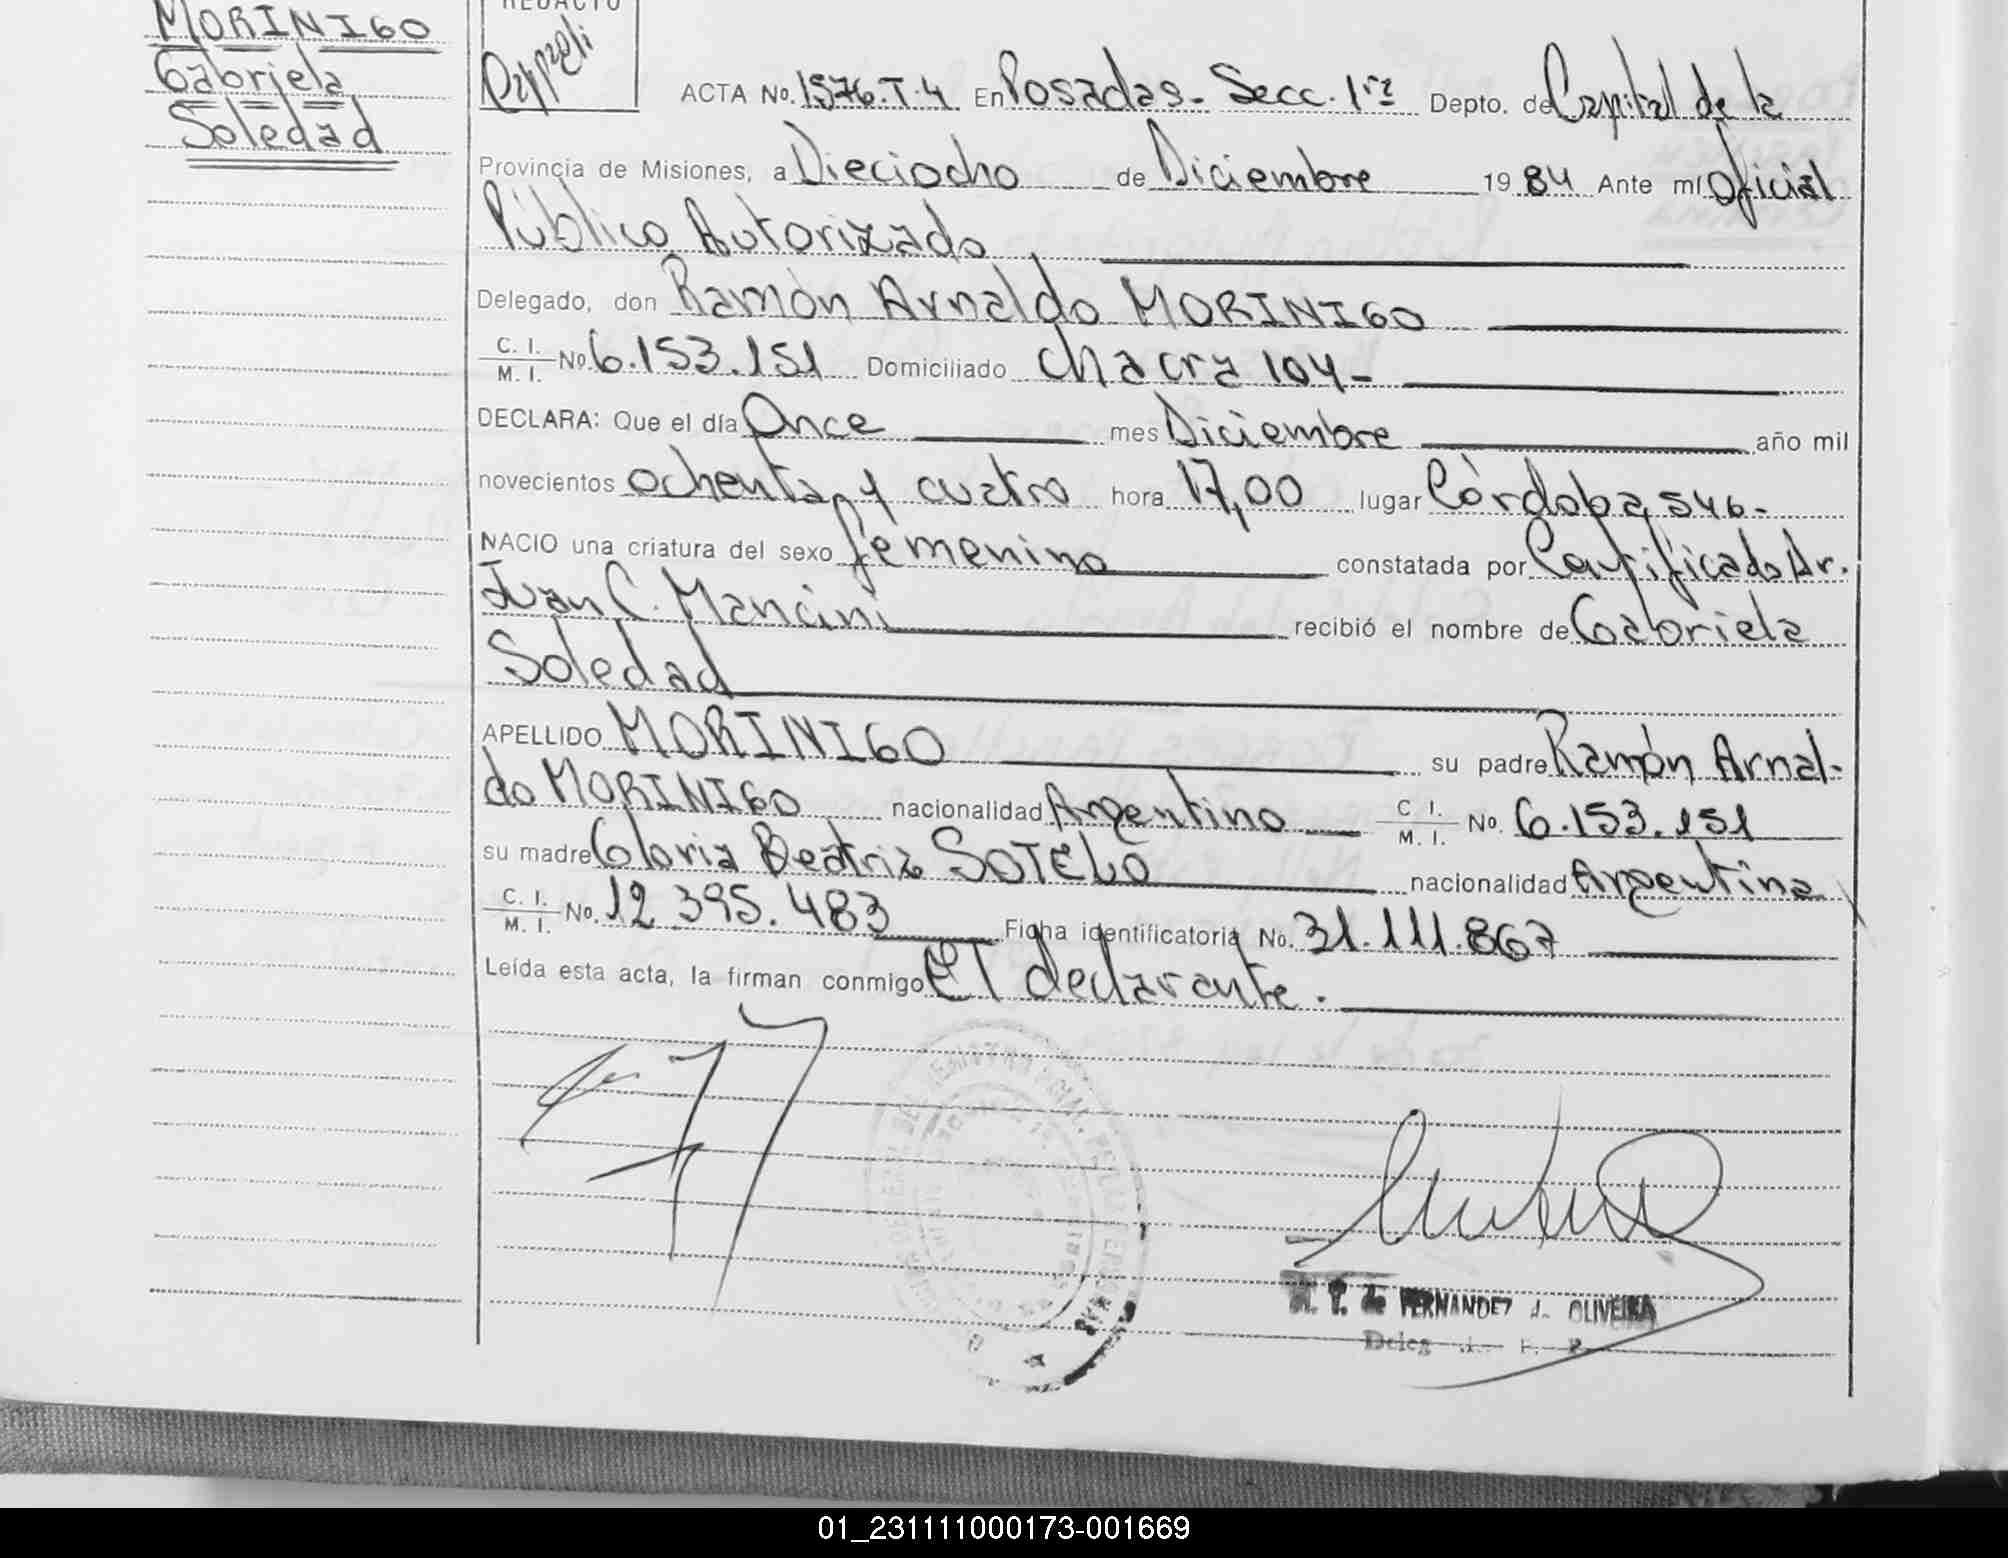 MORINIGO
Gabriela
Soledad
REDACTO
ACTA No. 1576.T.4 En Posadas- Secc. 1ra Depto. de Capital de la
Provincia de Misiones, a Dieciocho de Diciembre 19 84 Ante mí Oficial
Público Autorizado
Delegado, don Ramón Arnaldo MORINIGO
C. I.
M. I. No. 6.153.151 Domiciliado Chacra 104-
DECLARA: Que el día Once mes Diciembre año mil
novecientos ochenta y cuatro hora 17,00 lugar Córdoba 546-
NACIO una criatura del sexo femenino constatada por Certificado Dr.
Juan C. Mancini recibió el nombre de Gabriela
Soledad
APELLIDO MORINIGO su padre Ramón Arnal-
do MORINIGO nacionalidad Argentino C. I.
M. I. No. 6.153.151
su madre Gloria Beatriz SOTELO nacionalidad Argentina
C. I.
M. I. No. 12.395.483 Ficha identificatoria No. 31.111.867
Leída esta acta, la firman conmigo El declarante.
de FERNANDEZ OLIVEIRA
Deleg
01_231111000173-001669